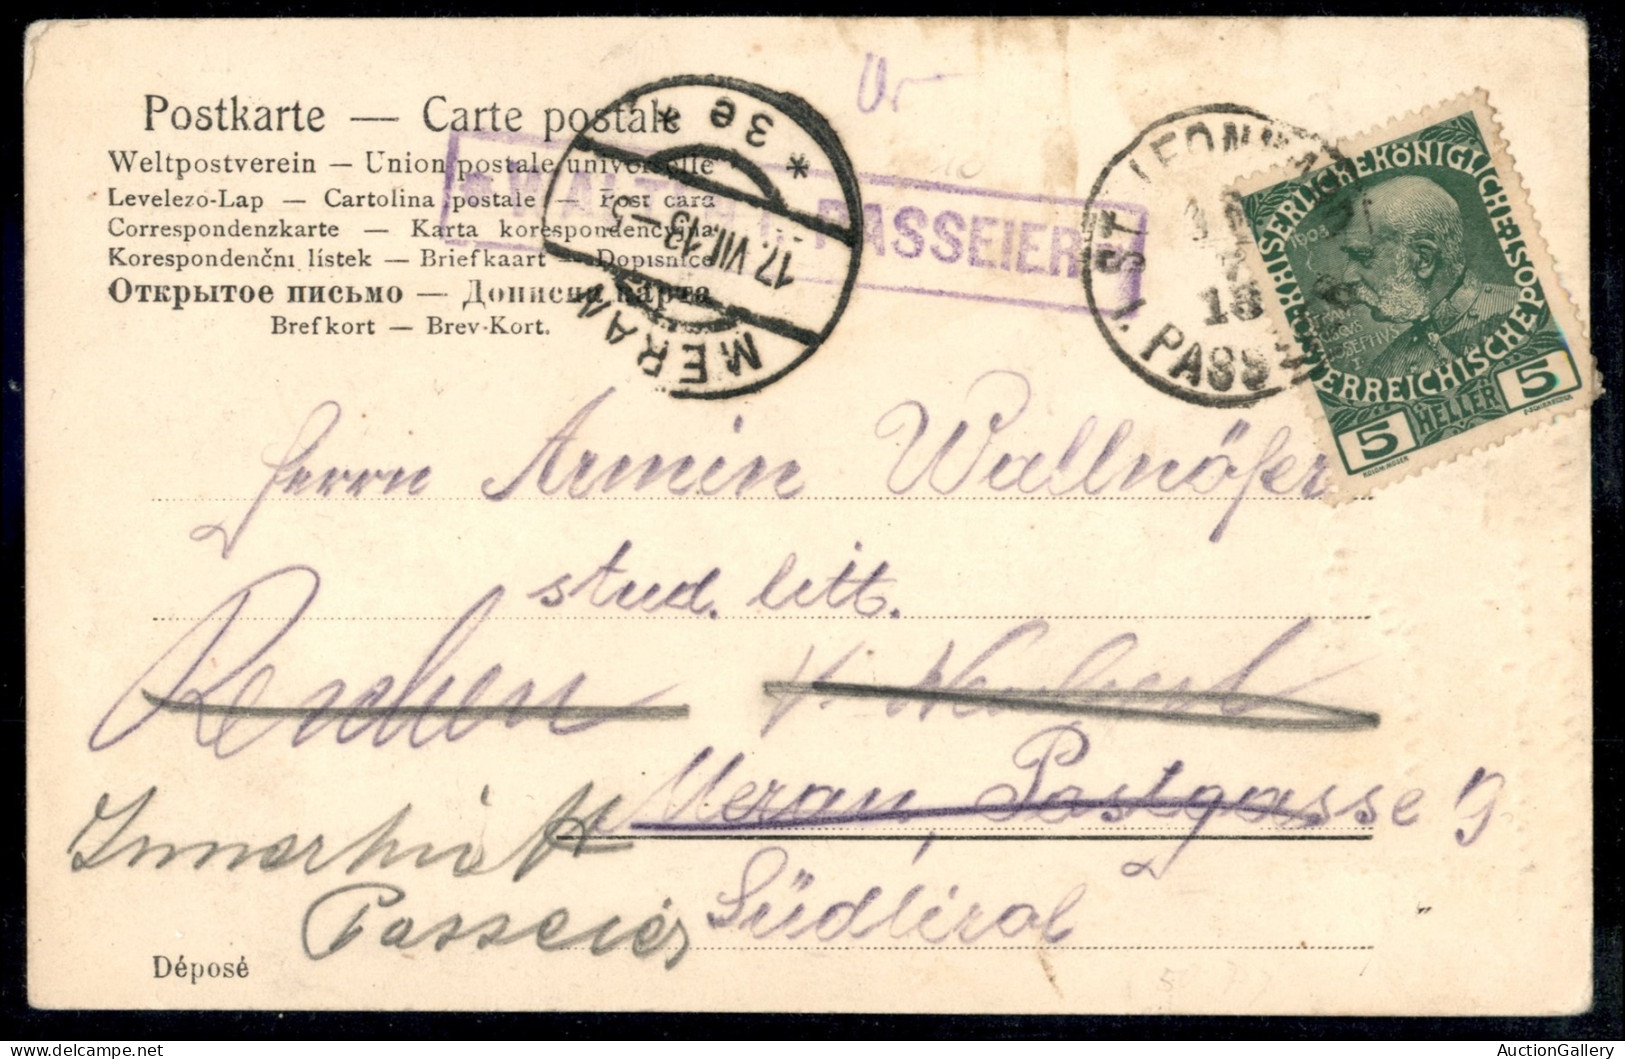 Postkarte — Carte postale
Weltpostverein — Union postale universelle
Levelező-Lap — Cartolina postale — Post card
Correspondenzkarte — Karta korespondencyjna
Korespondenční lístek — Briefkaart — Dopisnice
Открытое письмо — Дописна карта
Brefkort — Brev-Kort.
* 3e *
17. VII. 13–5
MERAN
WALTEN I. PASSEIER
ST. LEONHARD
13
I. PASS
KAISERLICHEKÖNIGLICHE
ÖSTERREICHISCHEPOST
1908
5 HELLER 5
KOLOM. MOSER
F. SCHIRNBÖCK
Herrn Armin Wallnöfer
stud. litt.
Meran, Postgasse 9
Innerhütt
Passeier
Südtirol
Déposé
AuctionGallery